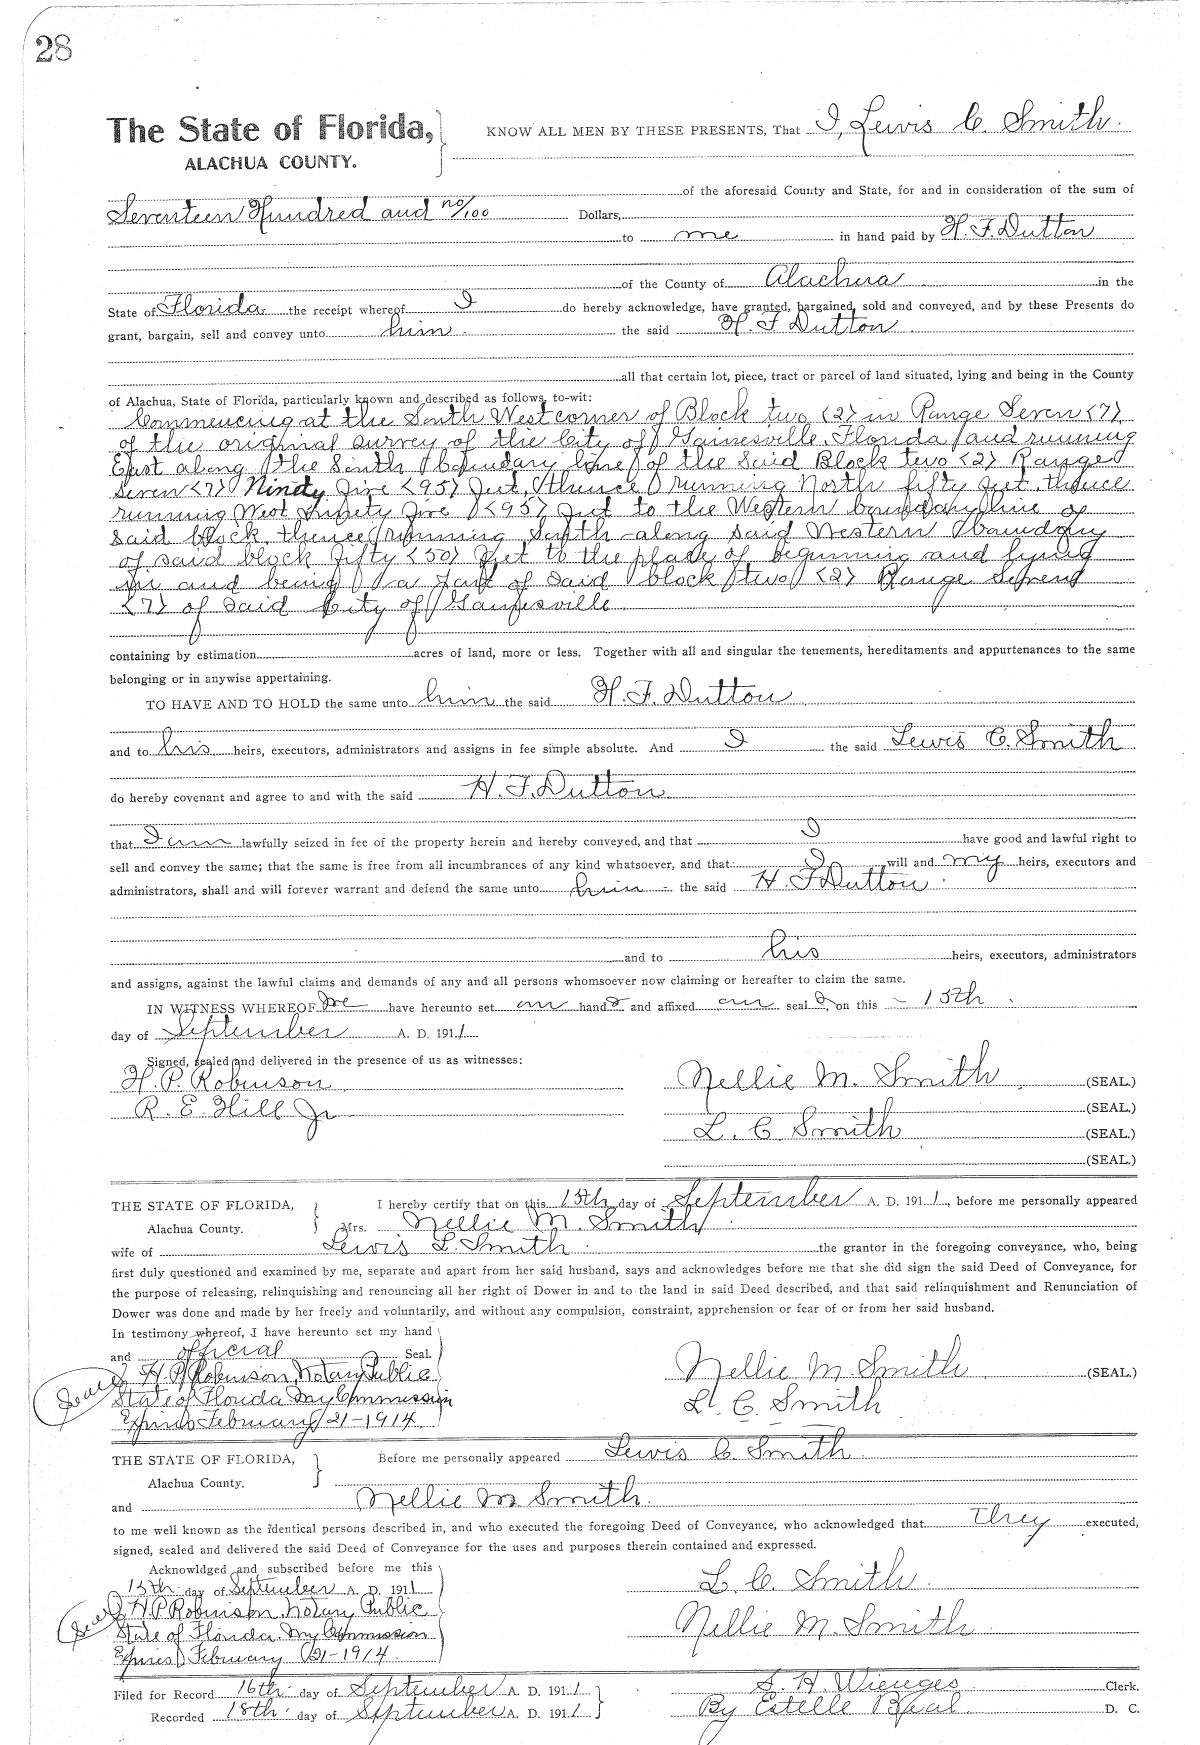 28
The State of Florida,
ALACHUA COUNTY.
KNOW ALL MEN BY THESE PRESENTS, That I, Lewis C. Smith.
of the aforesaid County and State, for and in consideration of the sum of
Seventeen Hundred and no/100 Dollars,
to me in hand paid by H. F. Dutton
of the County of Alachua in the
State of Florida the receipt whereof I do hereby acknowledge, have granted, bargained, sold and conveyed, and by these Presents do
grant, bargain, sell and convey unto him the said H. F. Dutton
all that certain lot, piece, tract or parcel of land situated, lying and being in the County
of Alachua, State of Florida, particularly known and described as follows, to-wit:
Commencing at the South West corner of Block two <2> in Range Seven <7>
of the original survey of the City of Gainesville, Florida and running
East along the South boundary line of the said Block two <2> Range
Seven <7> Ninety five <95> feet, thence running North fifty feet, thence
running West Ninety five <95> feet to the Western boundary line of
said block, thence running South along said Western boundary
of said block fifty <50> feet to the place of beginning and lying
in and being a part of said block two <2> Range Seven
<7> of said City of Gainesville
containing by estimation acres of land, more or less. Together with all and singular the tenements, hereditaments and appurtenances to the same
belonging or in anywise appertaining.
TO HAVE AND TO HOLD the same unto him the said H. F. Dutton
and to his heirs, executors, administrators and assigns in fee simple absolute. And I the said Lewis C. Smith
do hereby covenant and agree to and with the said H. F. Dutton
that I am lawfully seized in fee of the property herein and hereby conveyed, and that I have good and lawful right to
sell and convey the same; that the same is free from all incumbrances of any kind whatsoever, and that I will and my heirs, executors and
administrators, shall and will forever warrant and defend the same unto him the said H. F. Dutton
and to his heirs, executors, administrators
and assigns, against the lawful claims and demands of any and all persons whomsoever now claiming or hereafter to claim the same.
IN WITNESS WHEREOF We have hereunto set our hands and affixed our seals, on this 15th
day of September A. D. 1911
Signed, sealed and delivered in the presence of us as witnesses:
H. P. Robinson
R. E. Hill Jr
Nellie M. Smith (SEAL.)
(SEAL.)
L. C. Smith (SEAL.)
(SEAL.)
THE STATE OF FLORIDA,
Alachua County.
I hereby certify that on this 15th day of September A. D. 1911, before me personally appeared
Mrs. Nellie M. Smith
wife of Lewis L. Smith the grantor in the foregoing conveyance, who, being
first duly questioned and examined by me, separate and apart from her said husband, says and acknowledges before me that she did sign the said Deed of Conveyance, for
the purpose of releasing, relinquishing and renouncing all her right of Dower in and to the land in said Deed described, and that said relinquishment and Renunciation of
Dower was done and made by her freely and voluntarily, and without any compulsion, constraint, apprehension or fear of or from her said husband.
In testimony whereof, I have hereunto set my hand
and official Seal.
Seal H. P. Robinson, Notary Public
State of Florida My Commission
Expires February 21-1914
Nellie M. Smith (SEAL)
L. C. Smith
THE STATE OF FLORIDA,
Alachua County.
Before me personally appeared Lewis C. Smith
and Nellie M Smith.
to me well known as the identical persons described in, and who executed the foregoing Deed of Conveyance, who acknowledged that they executed,
signed, sealed and delivered the said Deed of Conveyance for the uses and purposes therein contained and expressed.
Acknowldged and subscribed before me this
15th day of September A. D. 1911
Seal H P Robinson, Notary Public
State of Florida. My Commission
Expires February 21-1914.
L. C. Smith
Nellie M. Smith
Filed for Record 16th day of September A. D. 1911
Recorded 18th day of September A. D. 1911
S. H. Wienges Clerk.
By Estelle Beal D. C.